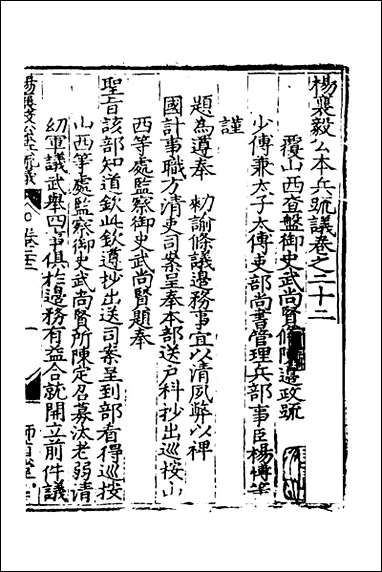 楊襄毅公本兵疏議卷之二十二
覆山西查盤御史武尚賢條陳邊政疏
少傅兼太子太傅吏部尚書管理兵部事臣楊博等
謹
題為遵奉 勅諭條議邊務事宜以清夙弊以裨
國計事職方清吏司案呈奉本部送戶科抄出巡按山
西等處監察御史武尚賢題奉
聖旨該部知道欽此欽遵抄出送司案呈到部看得巡按
山西等處監察御史武尚賢所陳定召募汰老弱清
幼軍議武舉四事俱於邊務有益合就開立前件議
楊襄毅公本兵疏議 卷二十二 一 師百堂